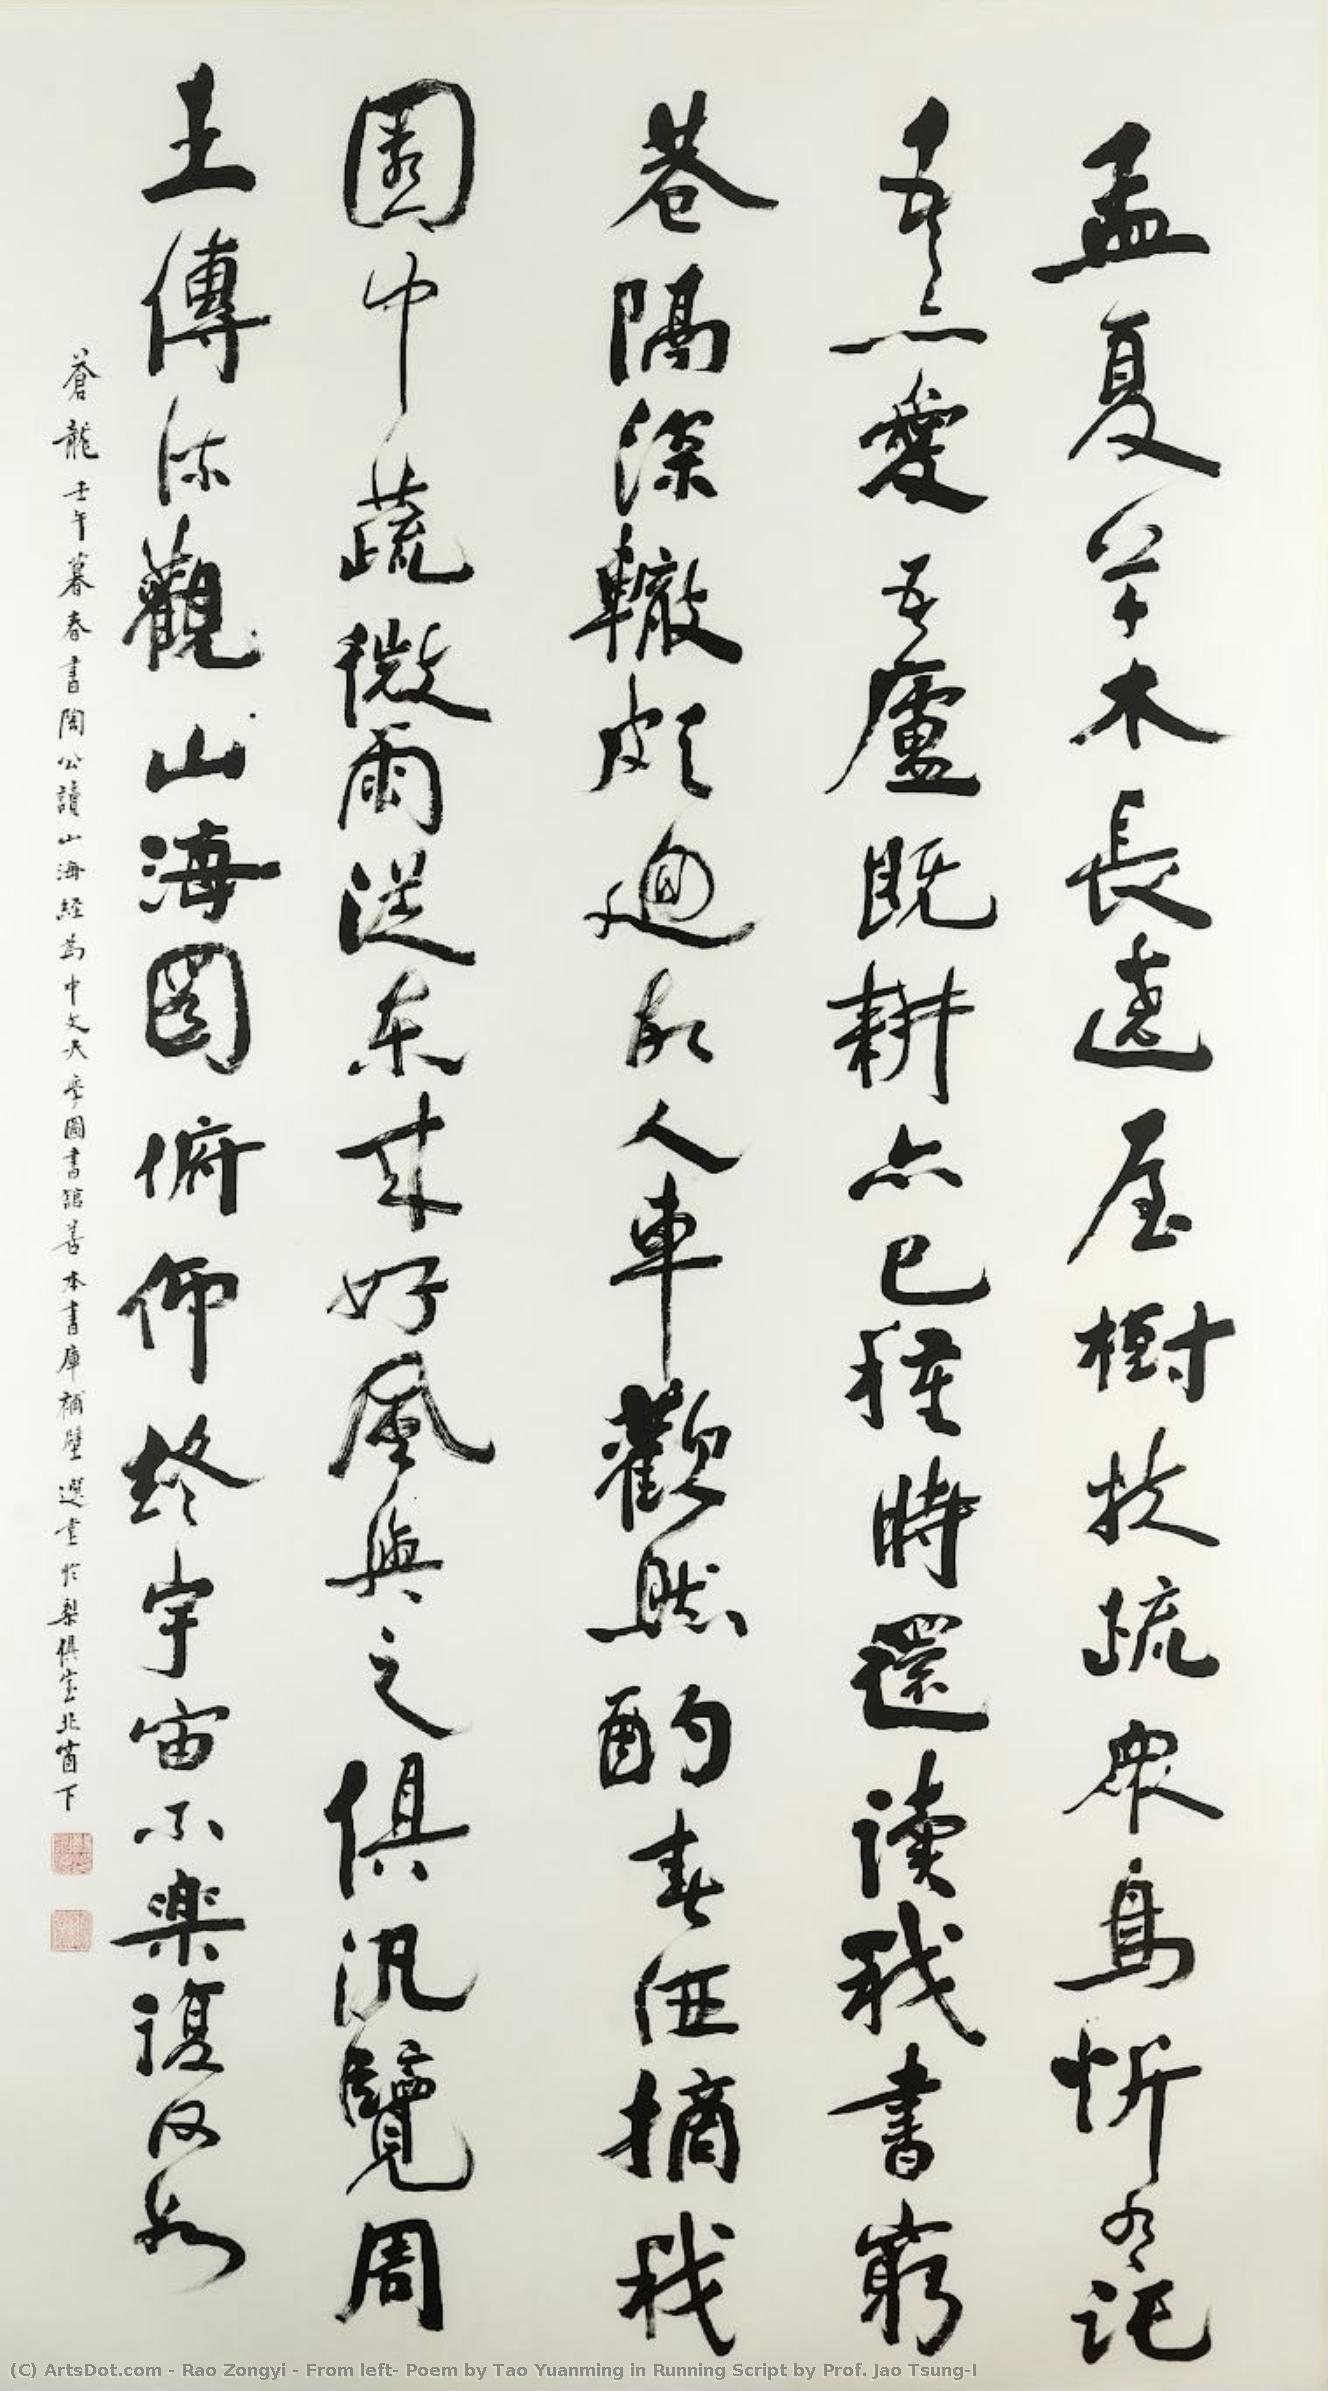 孟夏草木長遶屋樹扶疏眾鳥忻有託
吾亦愛吾廬既耕亦已種時還读我書窮
巷隔深轍頗迴故人車歡然酌春酒摘我
園中蔬微雨從东来好風與之俱汎覽周
王傳流觀山海圖俯仰終宇宙不樂復何如
蒼龍壬午暮春書陶公讀山海經為中文大學圖書館善本書庫補壁選堂於梨俱室北窗下
(C) ArtsDot.com - Rao Zongyi - From left- Poem by Tao Yuanming in Running Script by Prof. Jao Tsung-I